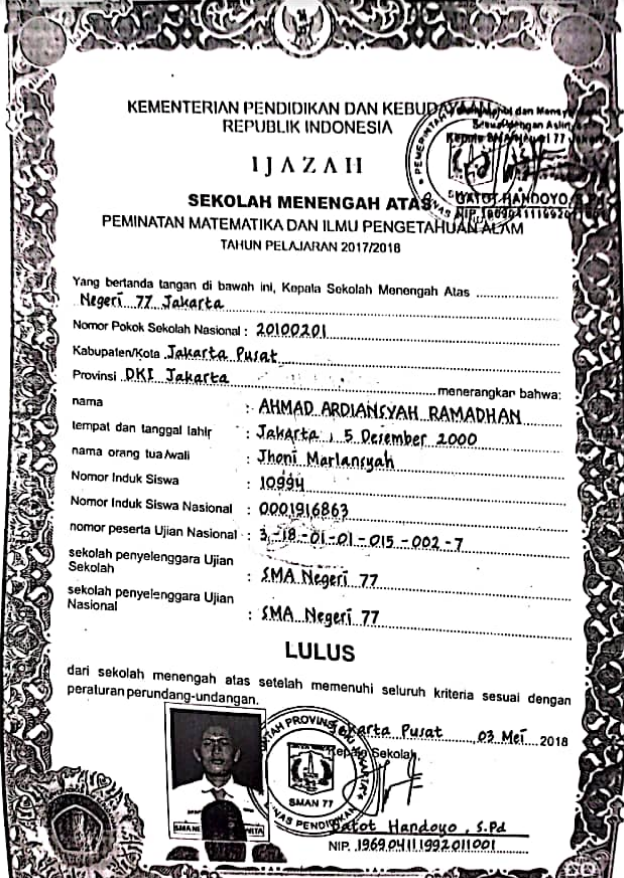 KEMENTERIAN PENDIDIKAN DAN KEBUDAYAAN
REPUBLIK INDONESIA
IJAZAH
SEKOLAH MENENGAH ATAS
PEMINATAN MATEMATIKA DAN ILMU PENGETAHUAN ALAM
TAHUN PELAJARAN 2017/2018
Sesuai dengan Aslinya
Kepala SMA Negeri 77 Jakarta
GATOT HANDOYO, S.Pd
NIP. 196904111992011001
Yang bertanda tangan di bawah ini, Kepala Sekolah Menengah Atas
Negeri 77 Jakarta
Nomor Pokok Sekolah Nasional : 20100201
Kabupaten/Kota Jakarta Pusat
Provinsi DKI Jakarta menerangkan bahwa:
nama : AHMAD ARDIANSYAH RAMADHAN
tempat dan tanggal lahir : Jakarta , 5 Desember 2000
nama orang tua/wali : Jhoni Marlansyah
Nomor Induk Siswa : 10994
Nomor Induk Siswa Nasional : 0001916863
nomor peserta Ujian Nasional : 3-18-01-01-015-002-7
sekolah penyelenggara Ujian
Sekolah : SMA Negeri 77
sekolah penyelenggara Ujian
Nasional : SMA Negeri 77
LULUS
dari sekolah menengah atas setelah memenuhi seluruh kriteria sesuai dengan
peraturan perundang-undangan.
Jakarta Pusat , 03 Mei 2018
Kepala Sekolah,
SMAN 77
Gatot Handoyo , S.Pd
NIP. 196904111992011001